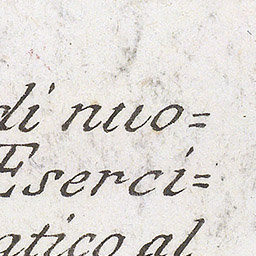 di nuo=
Eserci=
atico al